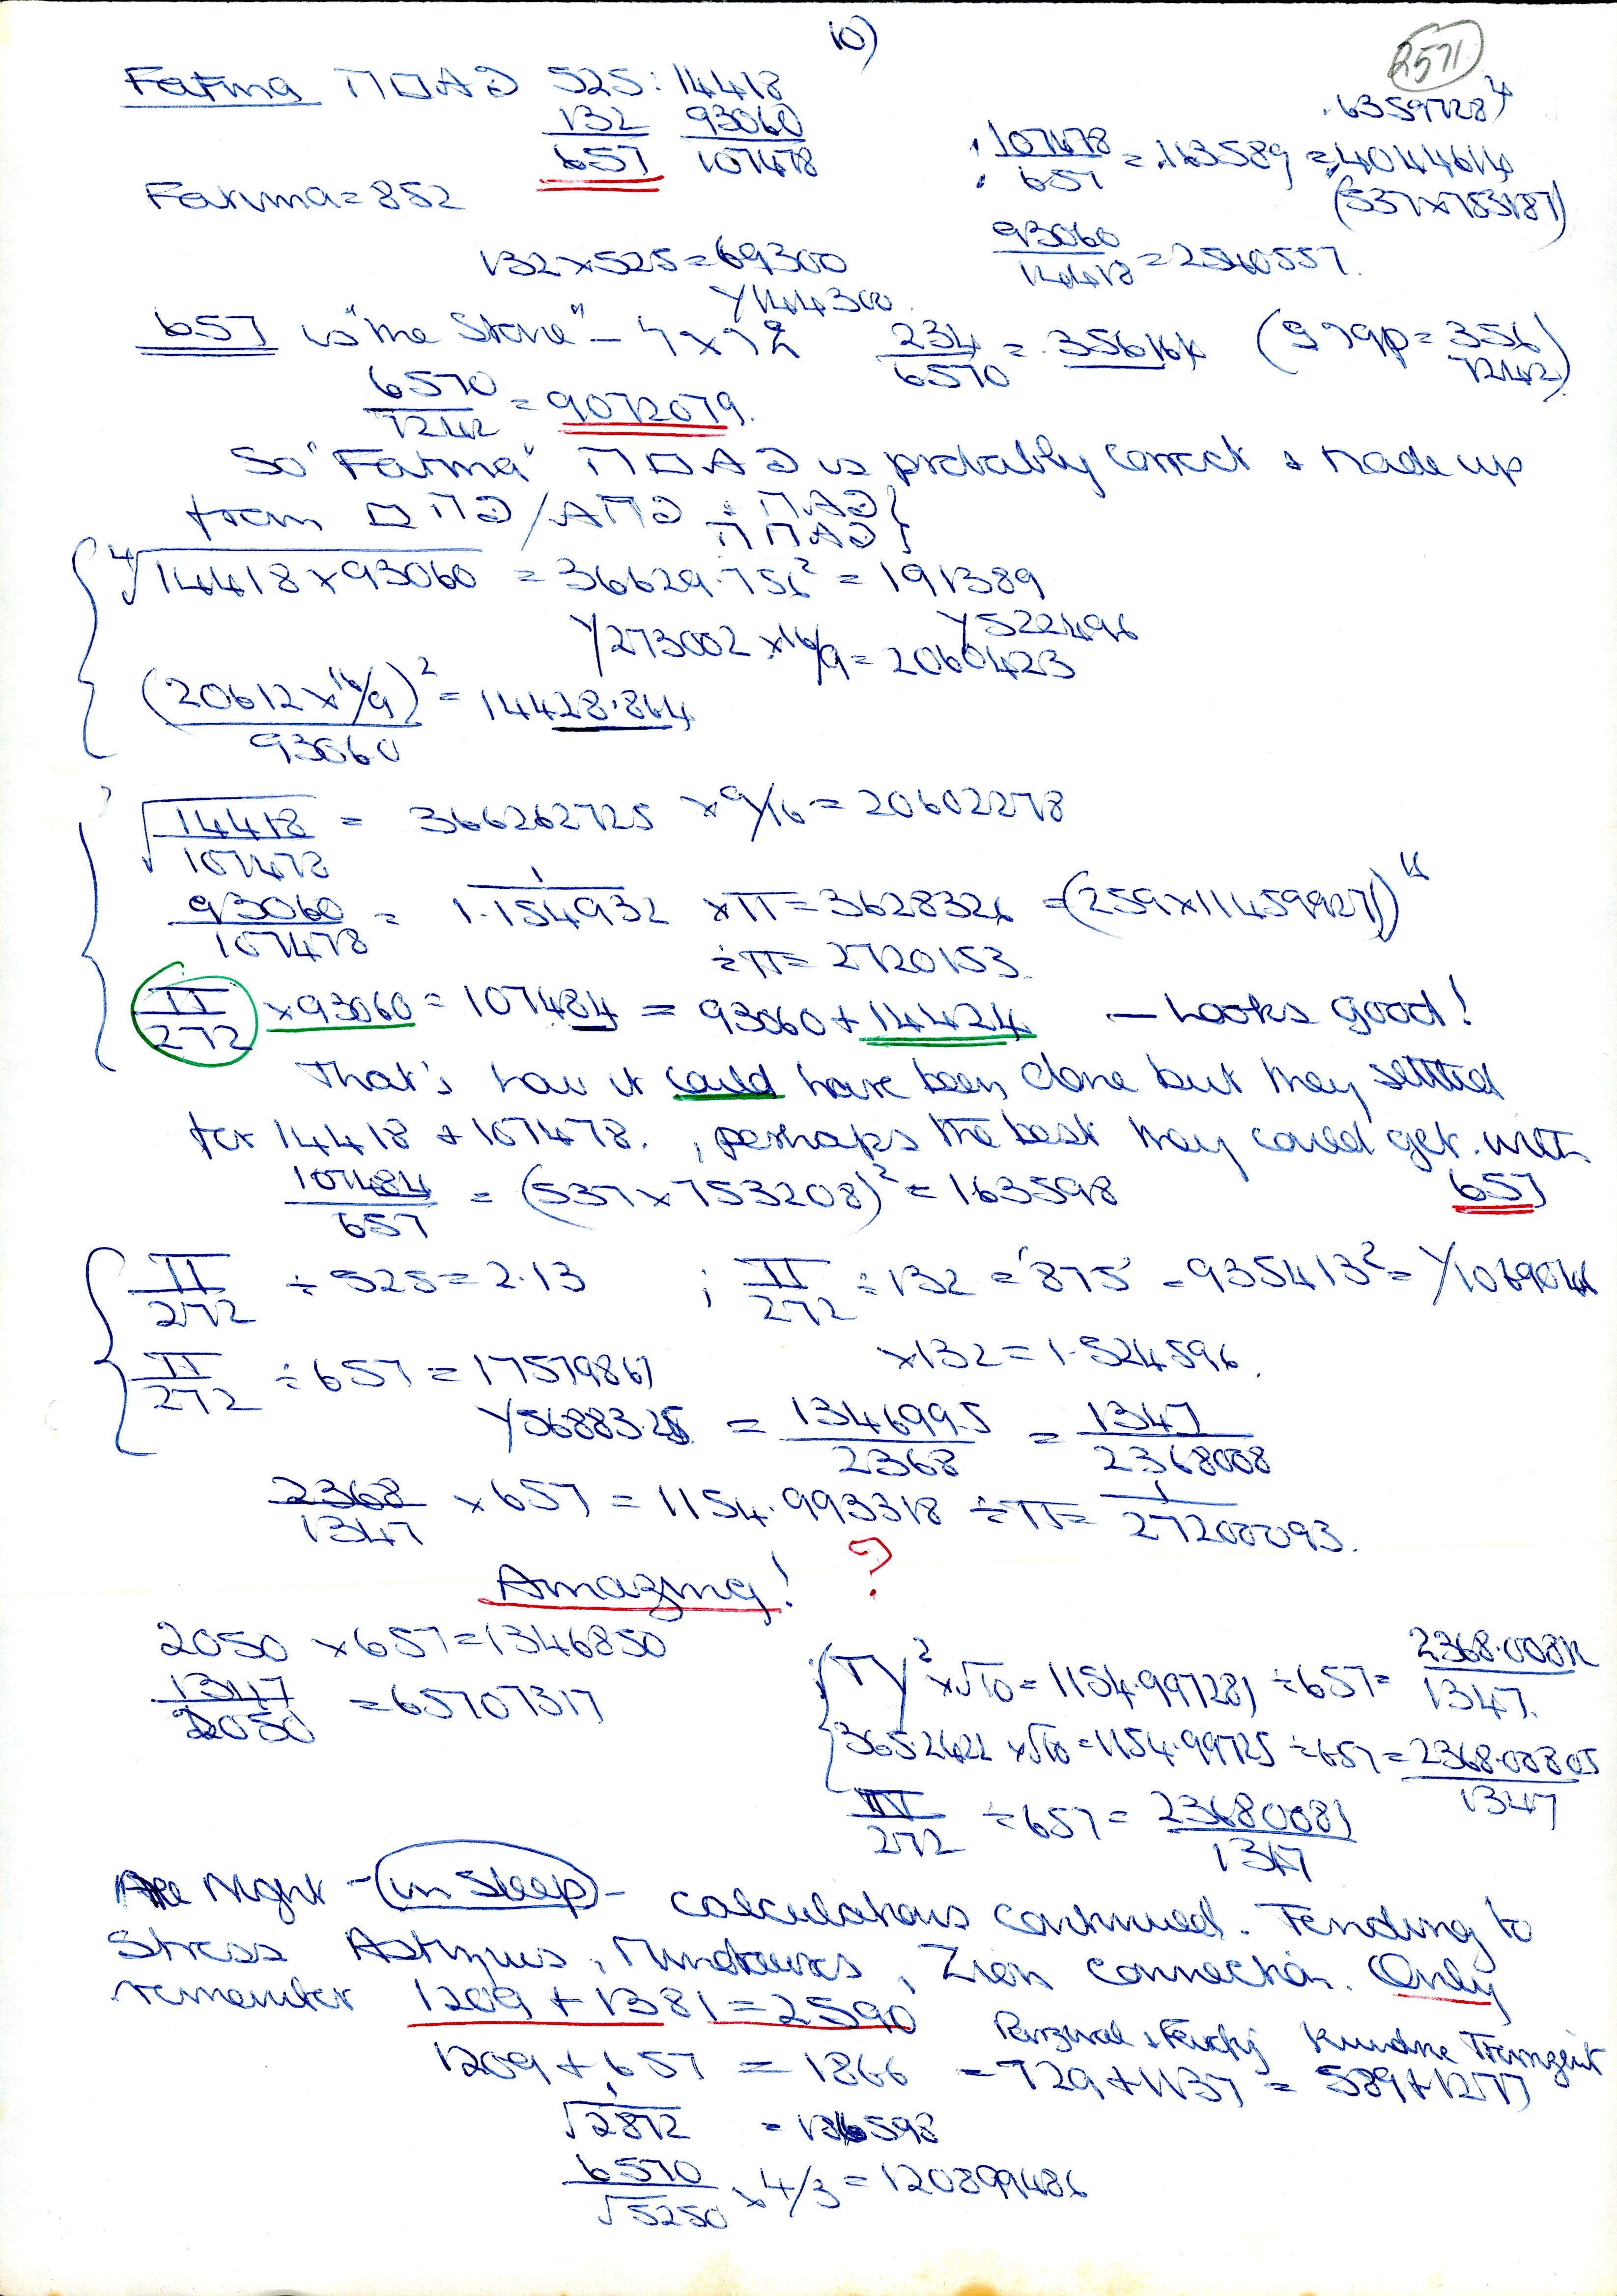 10)
2571
Fatima ΠΠAG 525 : 14418
132 93060
657 107478
.6359728)⁴
107478/657 = .163589 = .4044614
(537×753187)
Fatima = 852
132×525 = 69300
Y144300
93060/14418 = 2540557.
657 is "the Stone" – 7×7² 234/6570 = .356164 (979p = 356
7242)
6570/7242 = 9072079.
So "Fatima" is probably correct & made up
from
⁴√14418×93060 = 36629.756² = 191389
Y273002 ×16/9 = 2060423
Y522496
(20612×16/9)²/93060 = 14428.864
√14418/107478 = 366262725 ×9/16 = 20602278
93060/107478 = 1/1.154932 ×π = 3628326 = (259×11459927)¹⁶
÷π = 2720153
π/272 ×93060 = 107484 = 93060 + 14424 – Looks good!
That's how it could have been done but they settled
for 14418 & 107478. , perhaps the best they could get. with
657
107484/657 = (537×753208)² = 163598
π/272 ÷ 525 = 2.13 ; π/272 ÷ 132 = '875' = 935413² = Y1069046
×132 = 1.524596.
π/272 ÷ 657 = 17579867
Y56883.25 = 1346995/2368 = 1347/2368008
2368/1347 × 657 = 1154.993318 ÷ π = 1/27200093.
Amazing! ?
2050 × 657 = 1346850
1347/2050 = 65707317
(TY)² ×√10 = 1154.997281 ÷ 657 = 2368.0081/1347.
365.2422 ×√10 = 1154.99725 ÷ 657 = 2368.00805/1347
π/272 ÷ 657 = 23680081/1347
All Night – (in Sleep) – calculations continued. Tending to
Stress , , Zion connection. Only
remember 1209 + 1381 = 2590
1209 + 657 = 1866 = 729 + 1137 = 589 + 1277
1/√2872 = 186598
6570/√5250 × 4/3 = 120899486